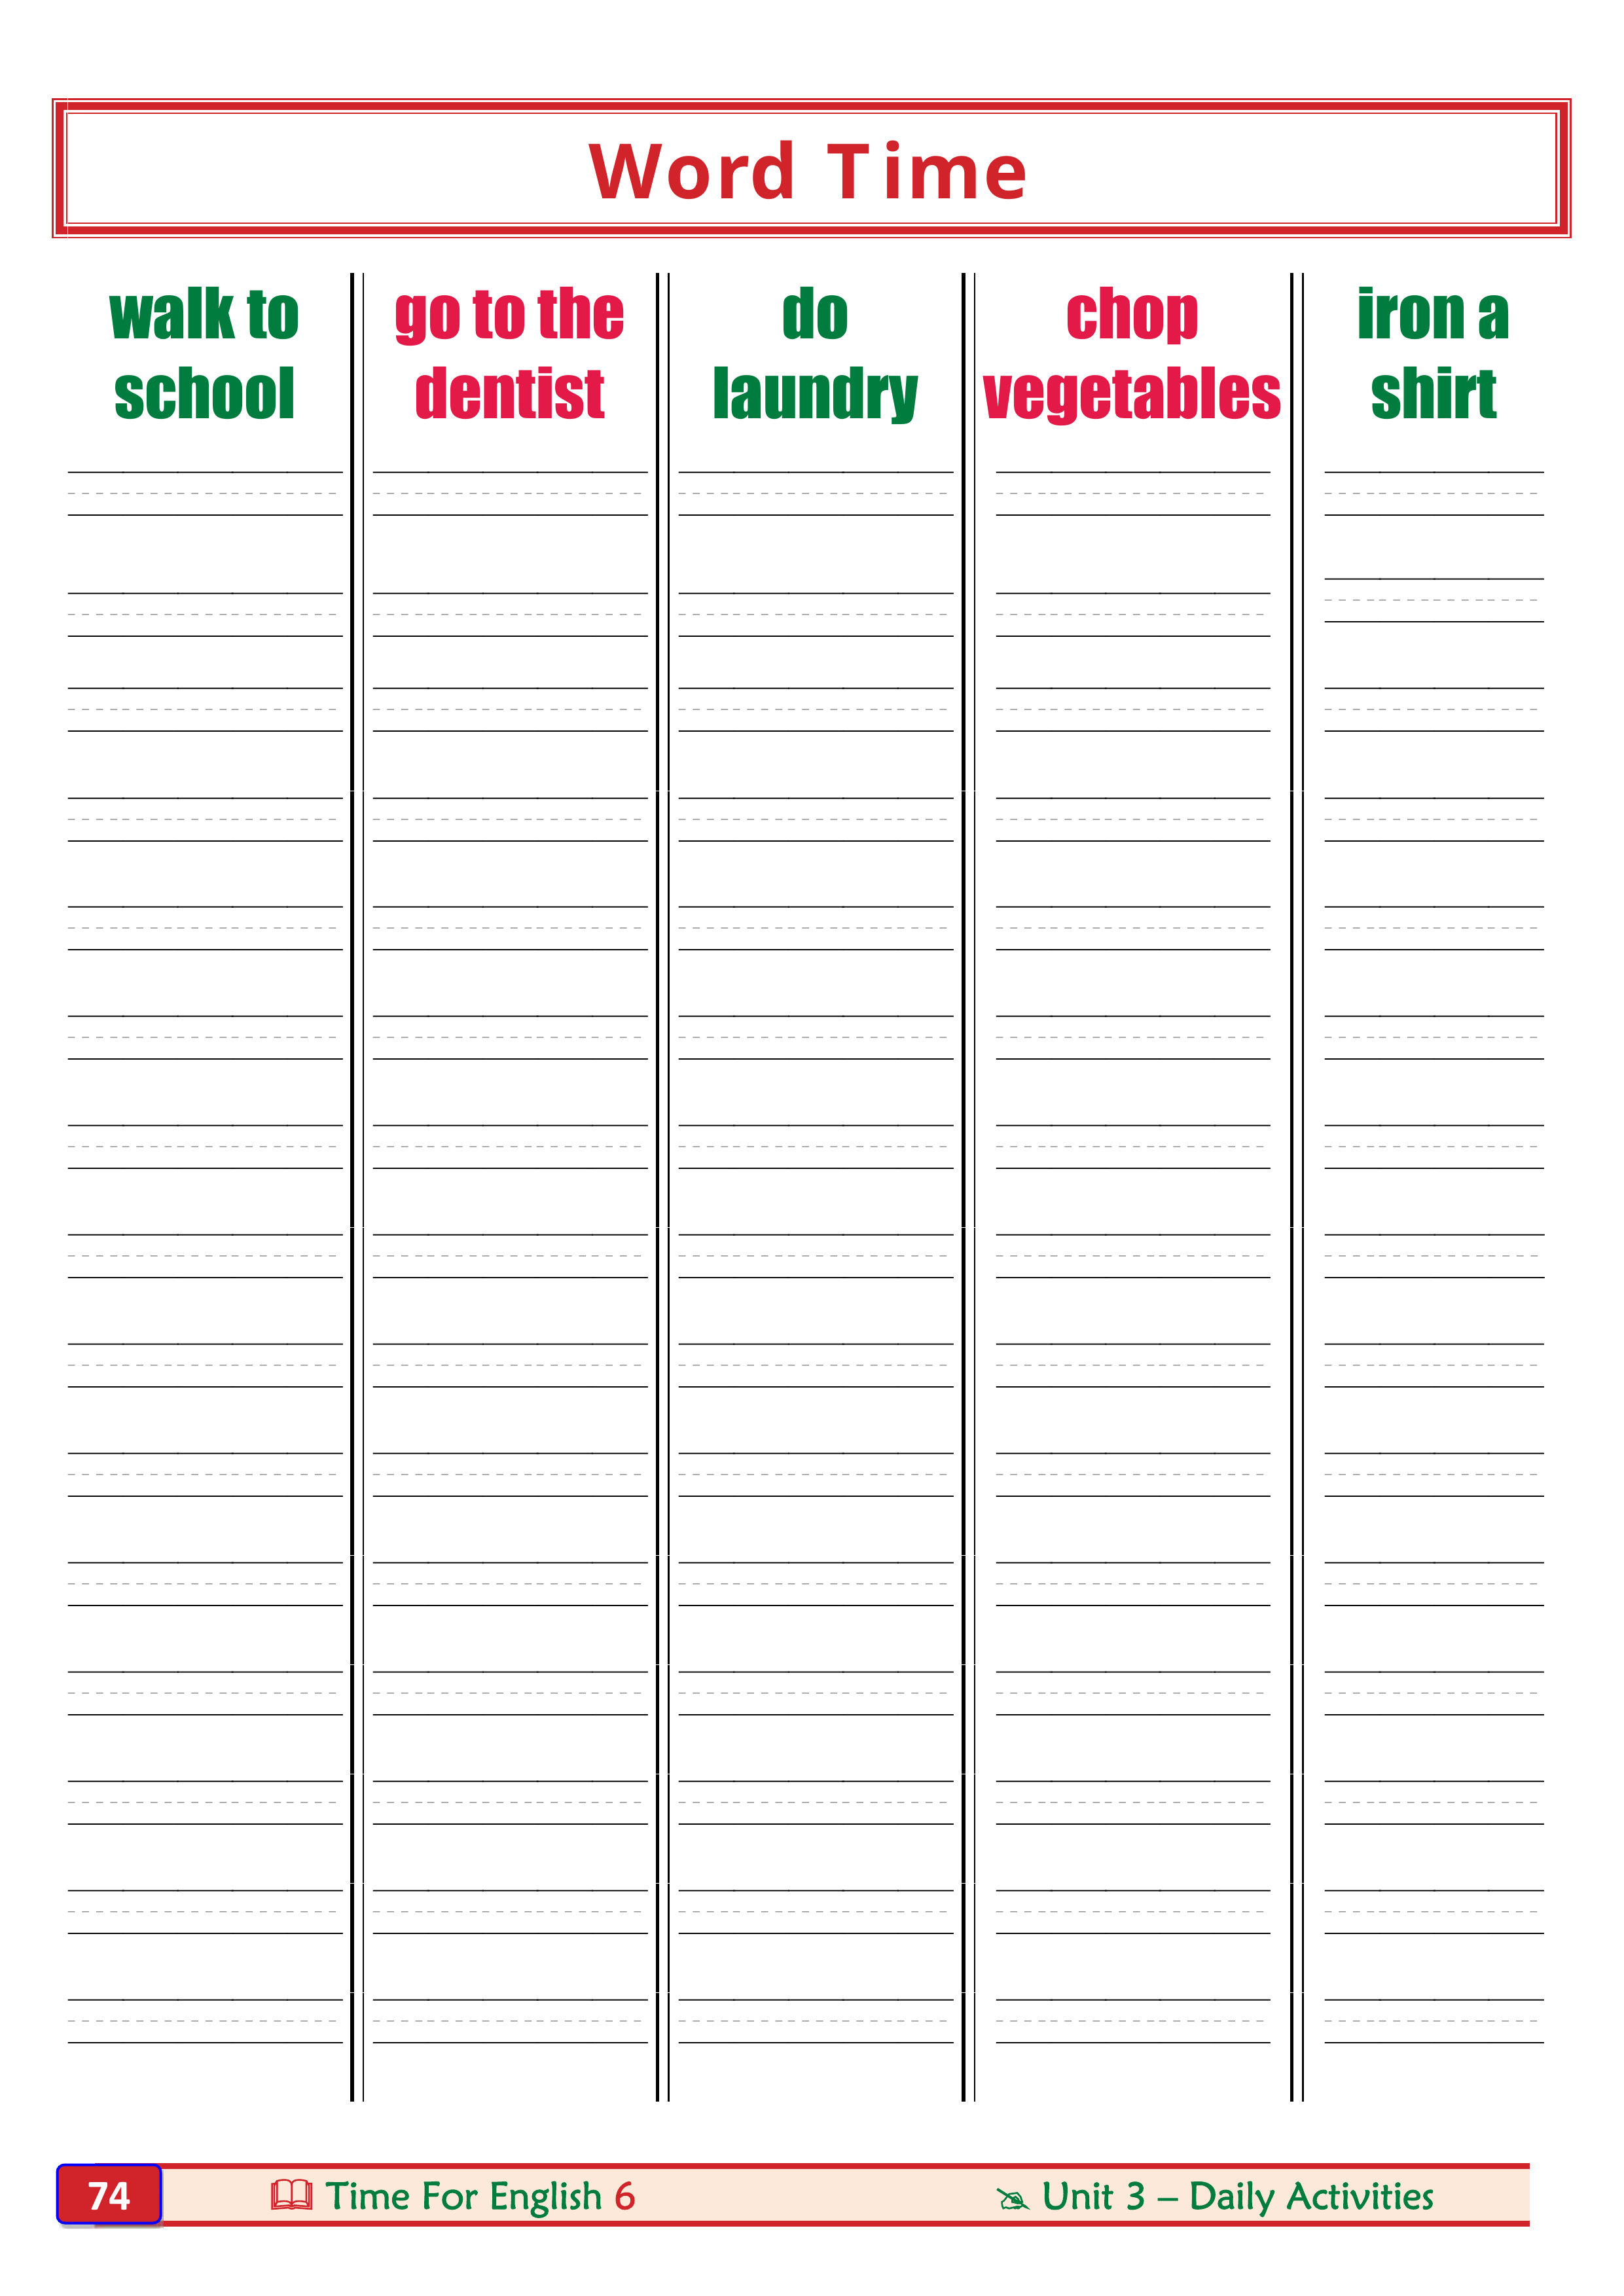 Word Time
walk to
school
go to the
dentist
do
laundry
chop
vegetables
iron a
shirt
74
Time For English 6
Unit 3 – Daily Activities